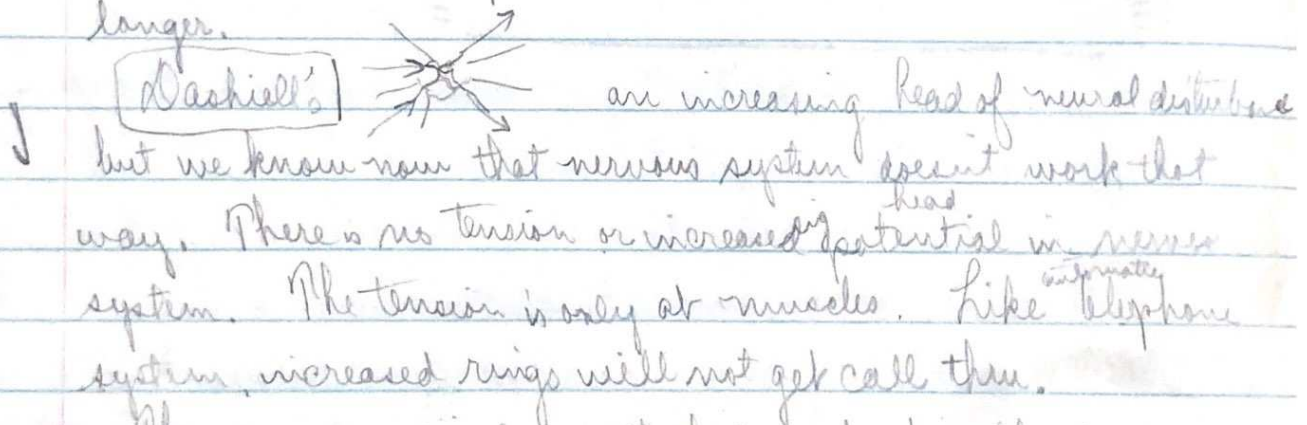 longer.
Dashiell's an increasing head of neural disturbance
but we know now that nervous system doesn't work that
way. There is no tension or increaseding head potential in nervous
system. The tension is only at muscles. Like automatic telephone
system, increased rings will not get call thru.